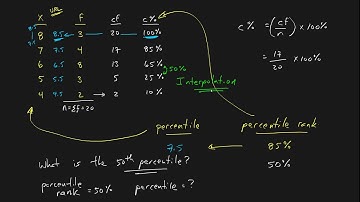 X URL F cf c%
8.5
8 8.5 3 20 100%
7.5
7 7.5 4 17 85%
6 6.5 8 13 65%
5 5.5 3 5 25%
4 4.5 2 2 10%
n=Σf=20
50%
Interpolation
c% = (cf/n) × 100%
= 17/20 × 100%
percentile percentile rank
7.5 85%
50%
What is the 50th percentile?
percentile rank = 50% percentile = ?